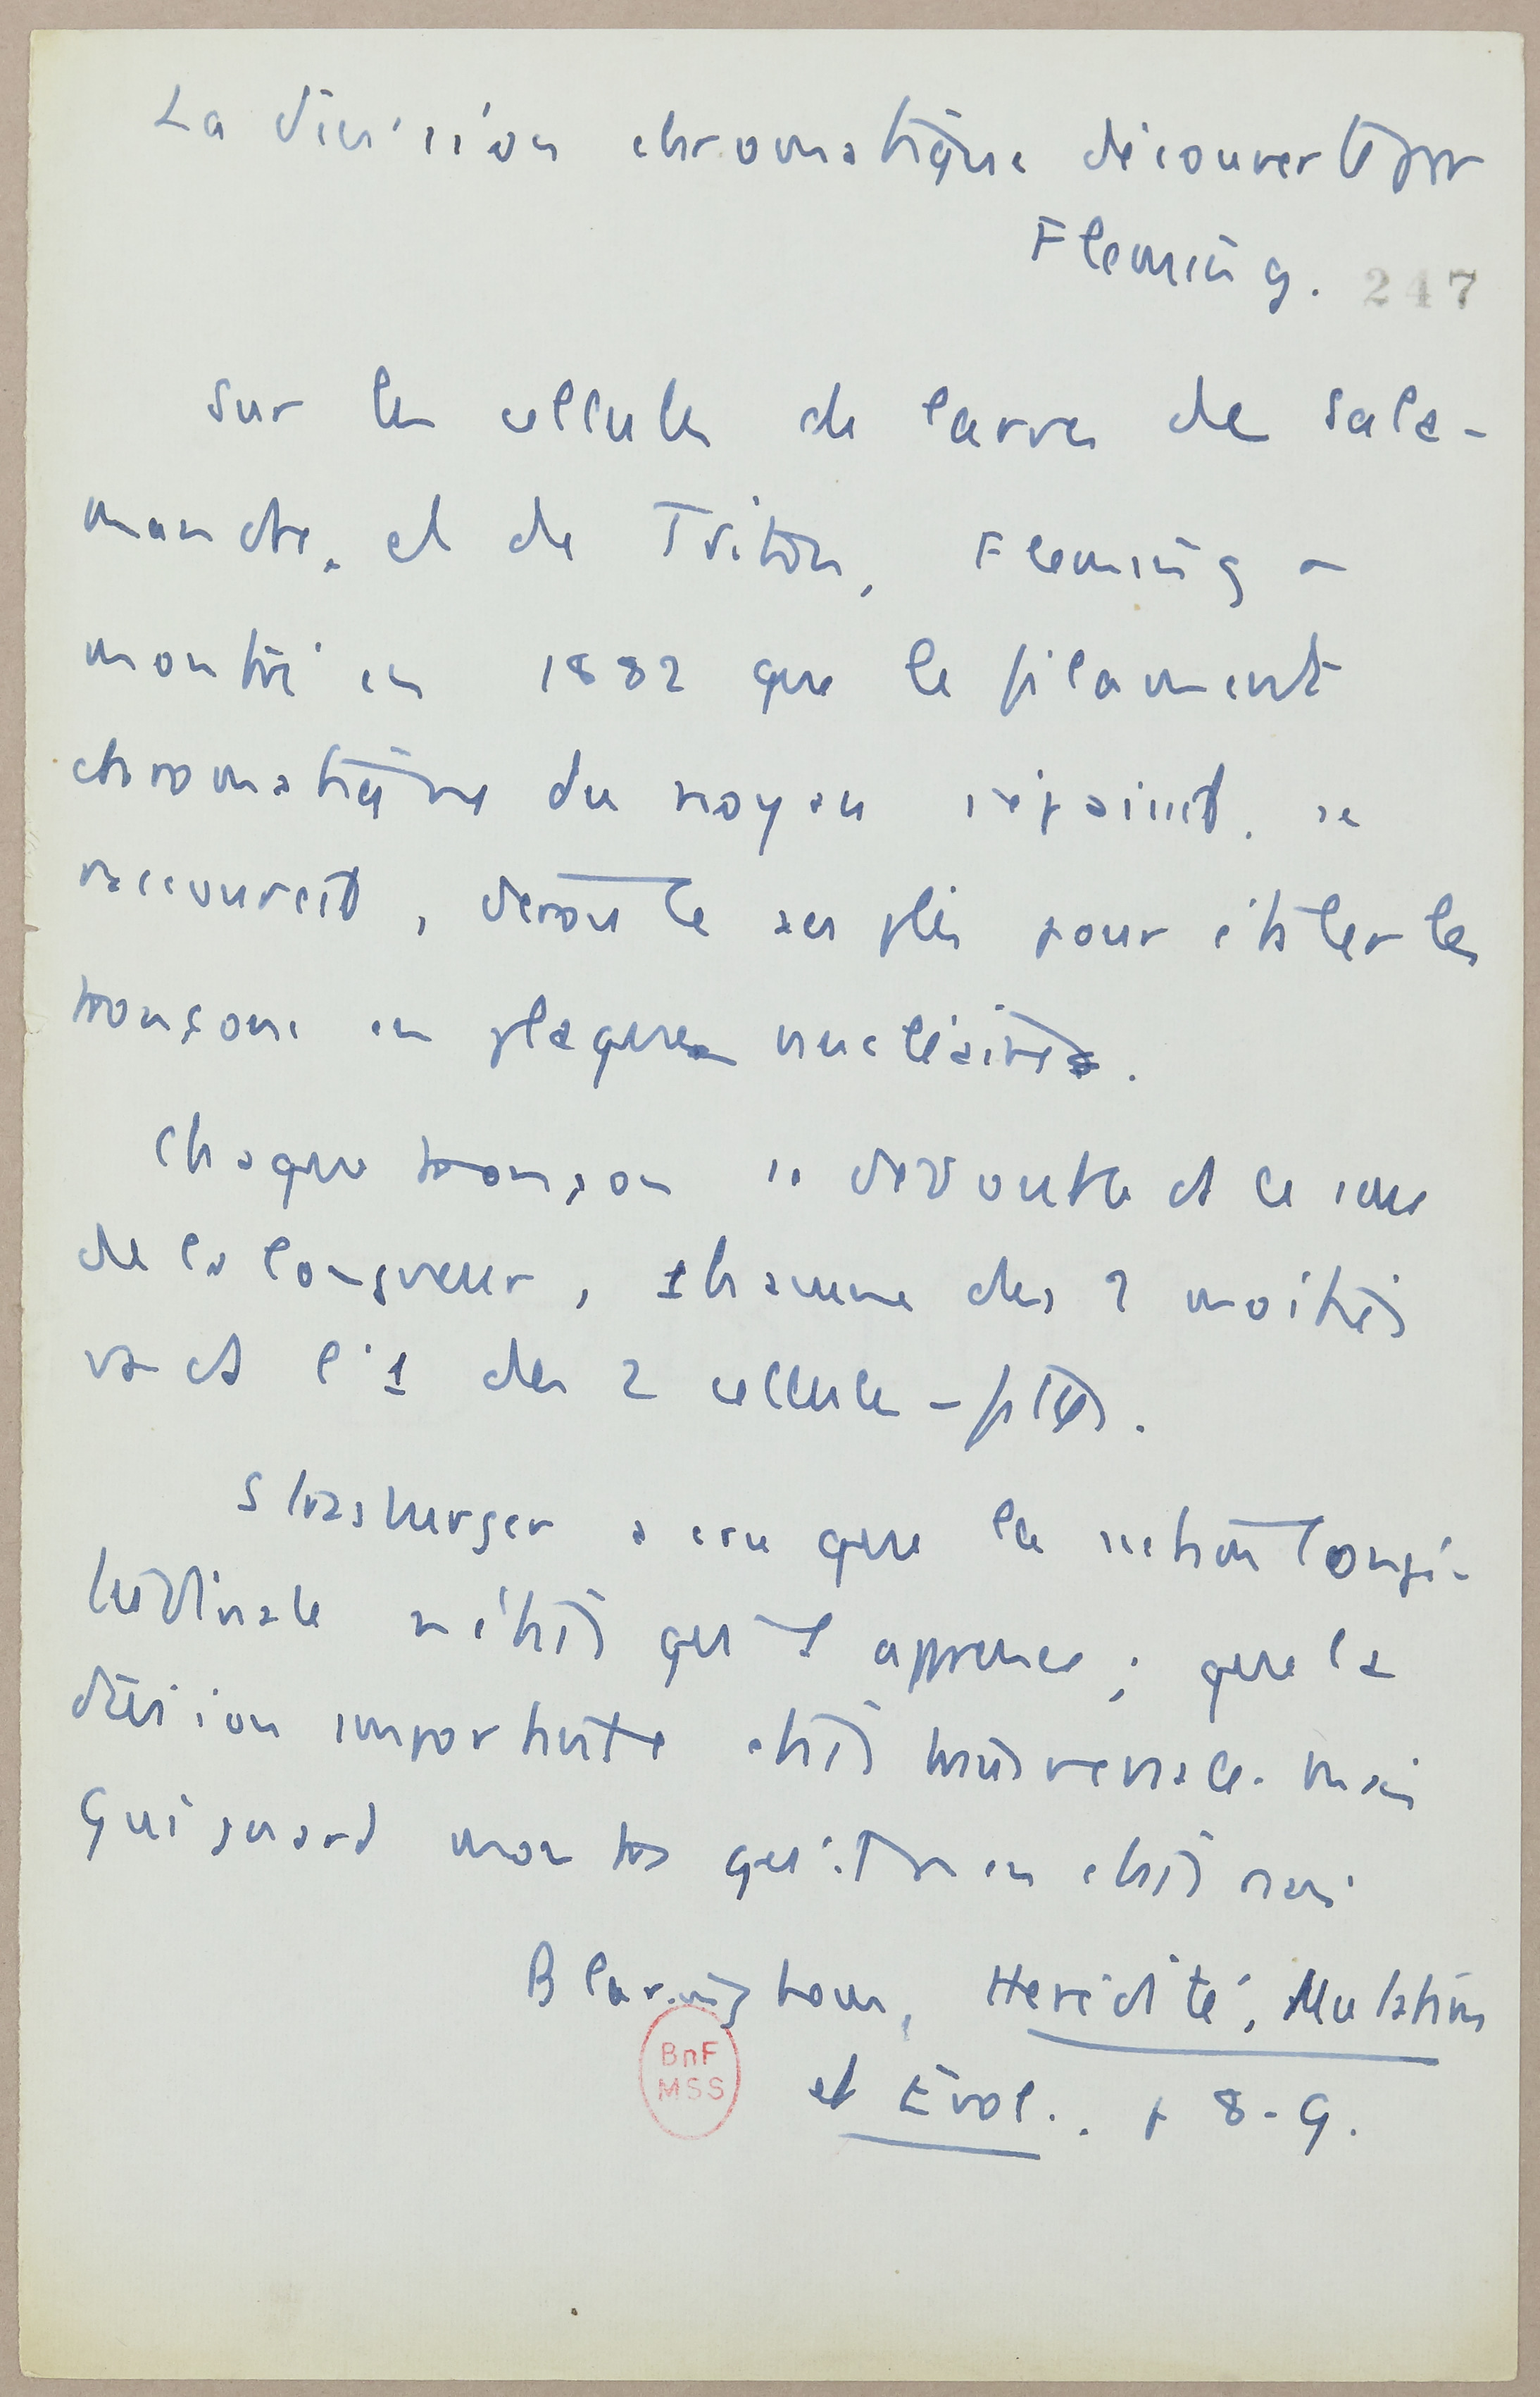 La division chromatique découverte par
Fleming.
247
Sur les cellules de larves de Sala-
mandre, et de Triton, Fleming a
montré en 1882 que le filament
chromatique du noyau s'épaissit, se
raccourcit, déroule ses plis pour étaler les
tronçons en plaque nucléaire.
Chaque tronçon se dédouble ds le sens
de la longueur, chacune des 2 moitiés
va ds l'1 des 2 cellules-filles.
Strasburger a cru que la section longi-
tudinale n'était qu'apparence ; que la
division importante était transversale. Mais
Guignard montra qu'il n'en était rien.
Blaringhem, Hérédité, Mutation
et Évol.. p 8-9.
BnF
MSS